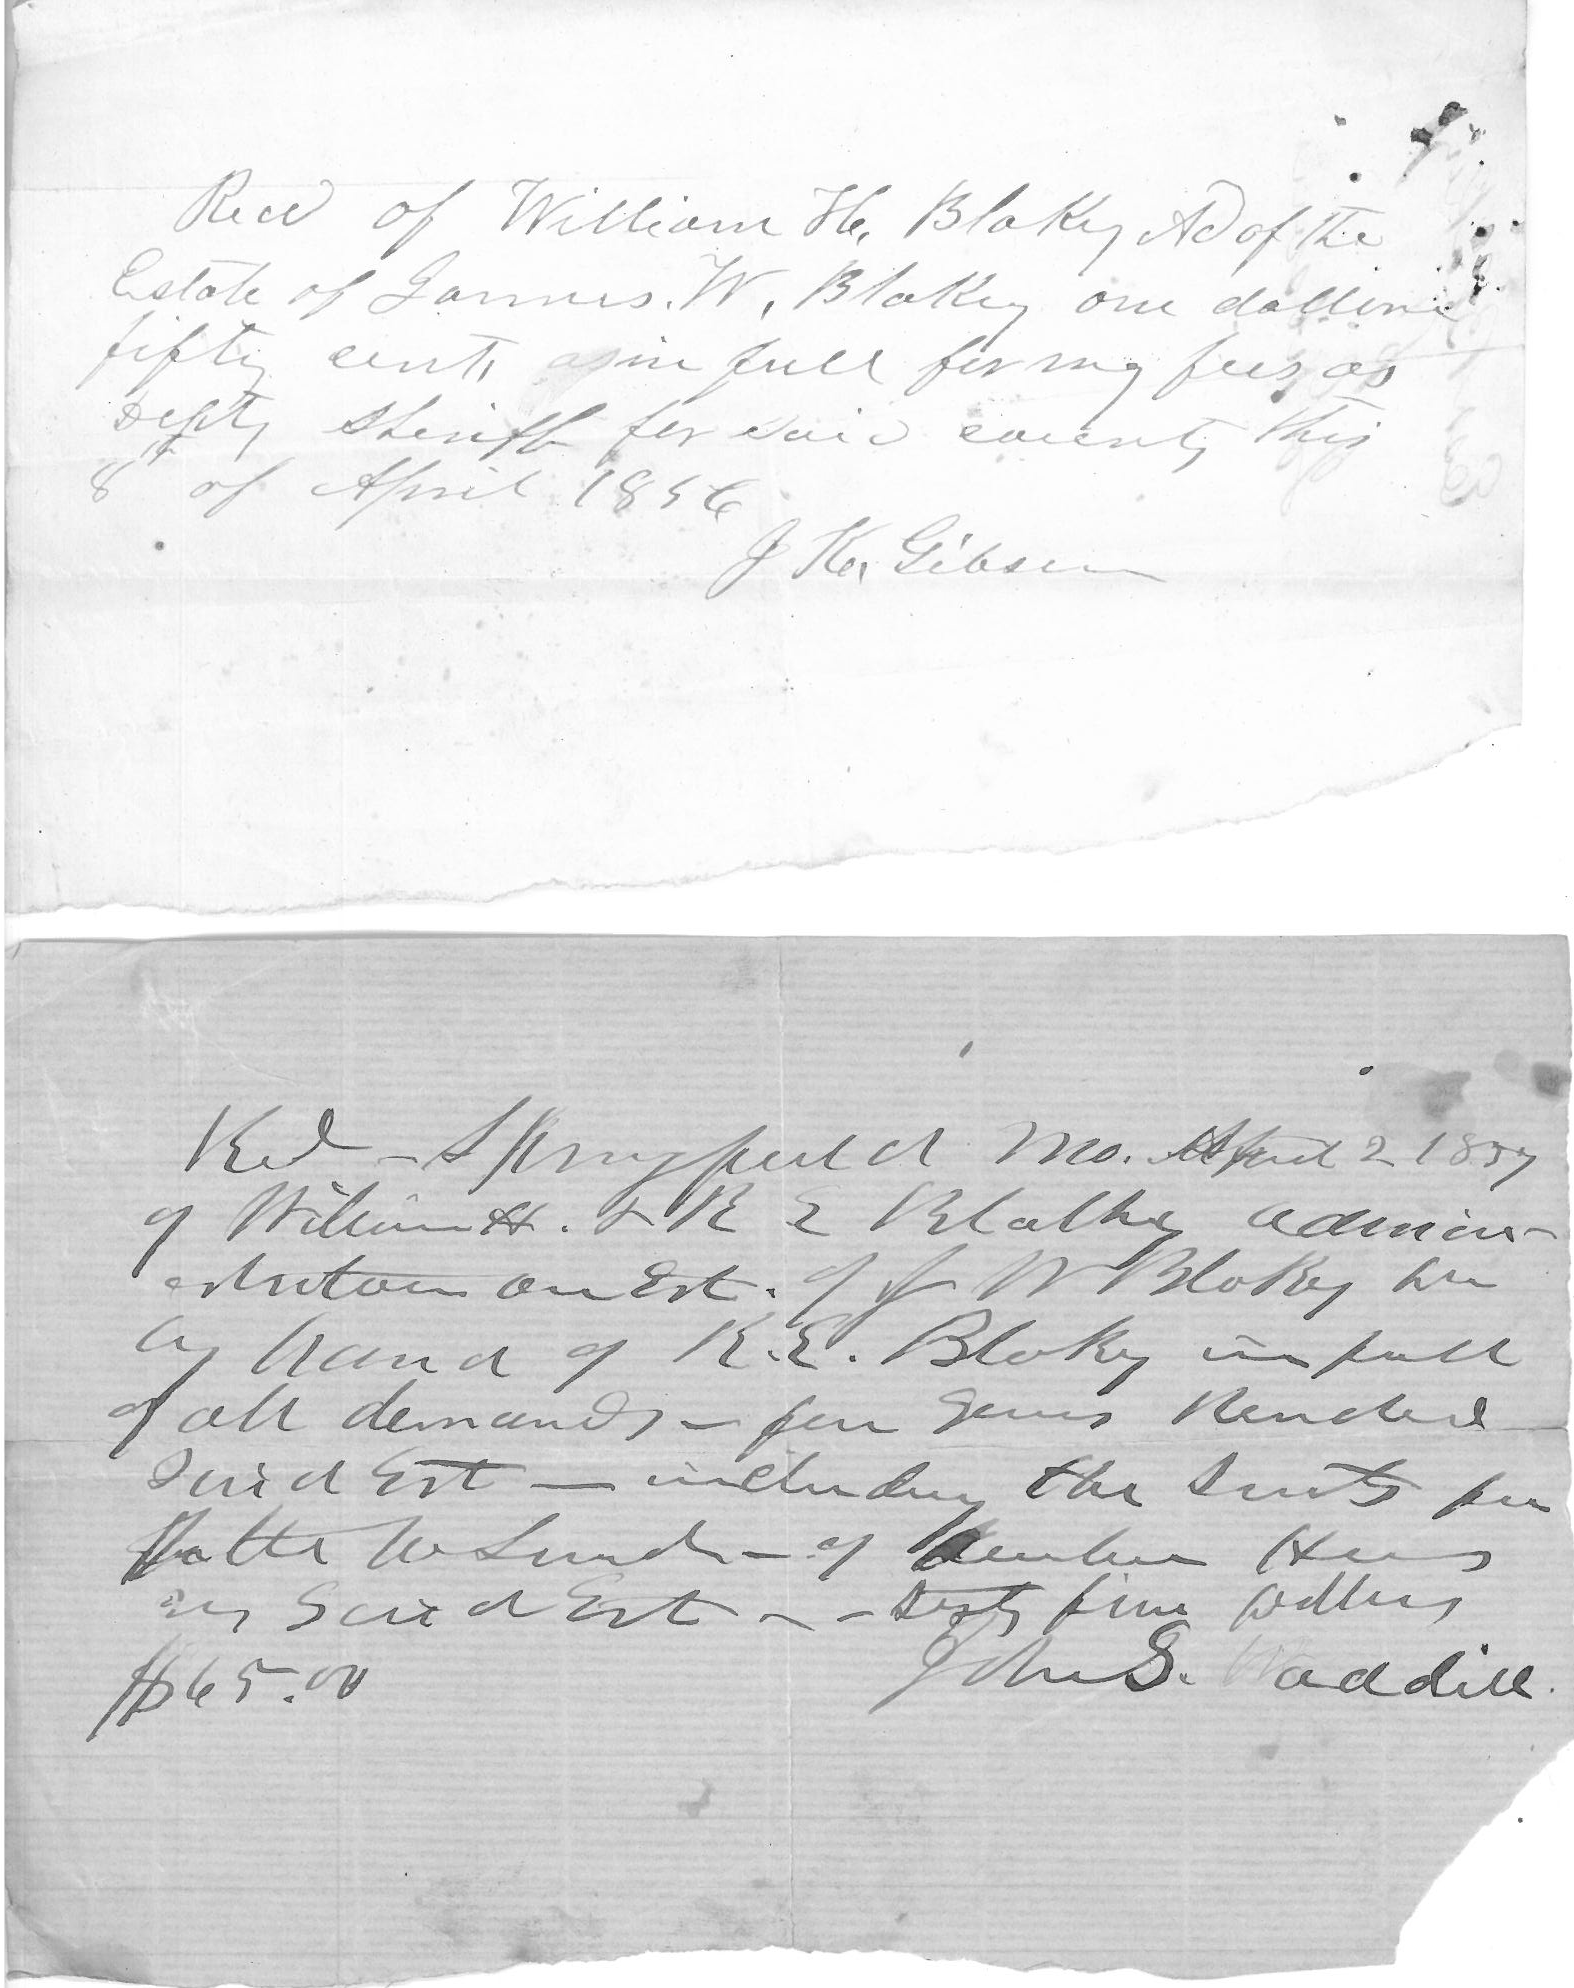 Recd of William H. Blakey Ad of the
Estate of James. W. Blakey one dollar
fifty cents in full for my fees as
Depty Sheriff for said county this
8th of April 1856
J K. Gibson
Recd - Springfield Mo. April 2 1857
of William H. & R E Blakey admin-
estrators on Est. of J W Blakey
by hand of R. E. Blakey in full
of all demands - for Rendered
Said Est - including the Suits for
of Heirs
Said Est - - Sixty five dollars
$65.00 John S. Waddill